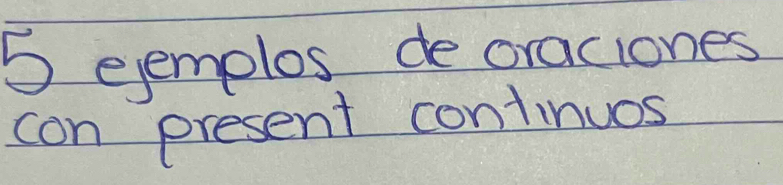 5 ejemplos de oraciones
con present continuos